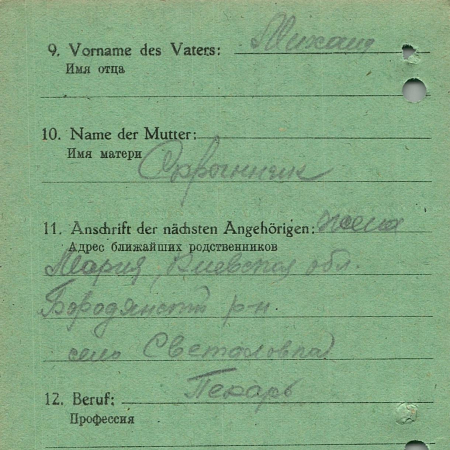 9. Vorname des Vaters: Михаил
Имя отца
10. Name der Mutter:
Имя матери
Скрынник
11. Anschrift der nächsten Angehörigen: жена
Адрес ближайших родственников
Мария, Киевская обл.
Бородянский р-н.
село
12. Beruf: Пекарь
Профессия